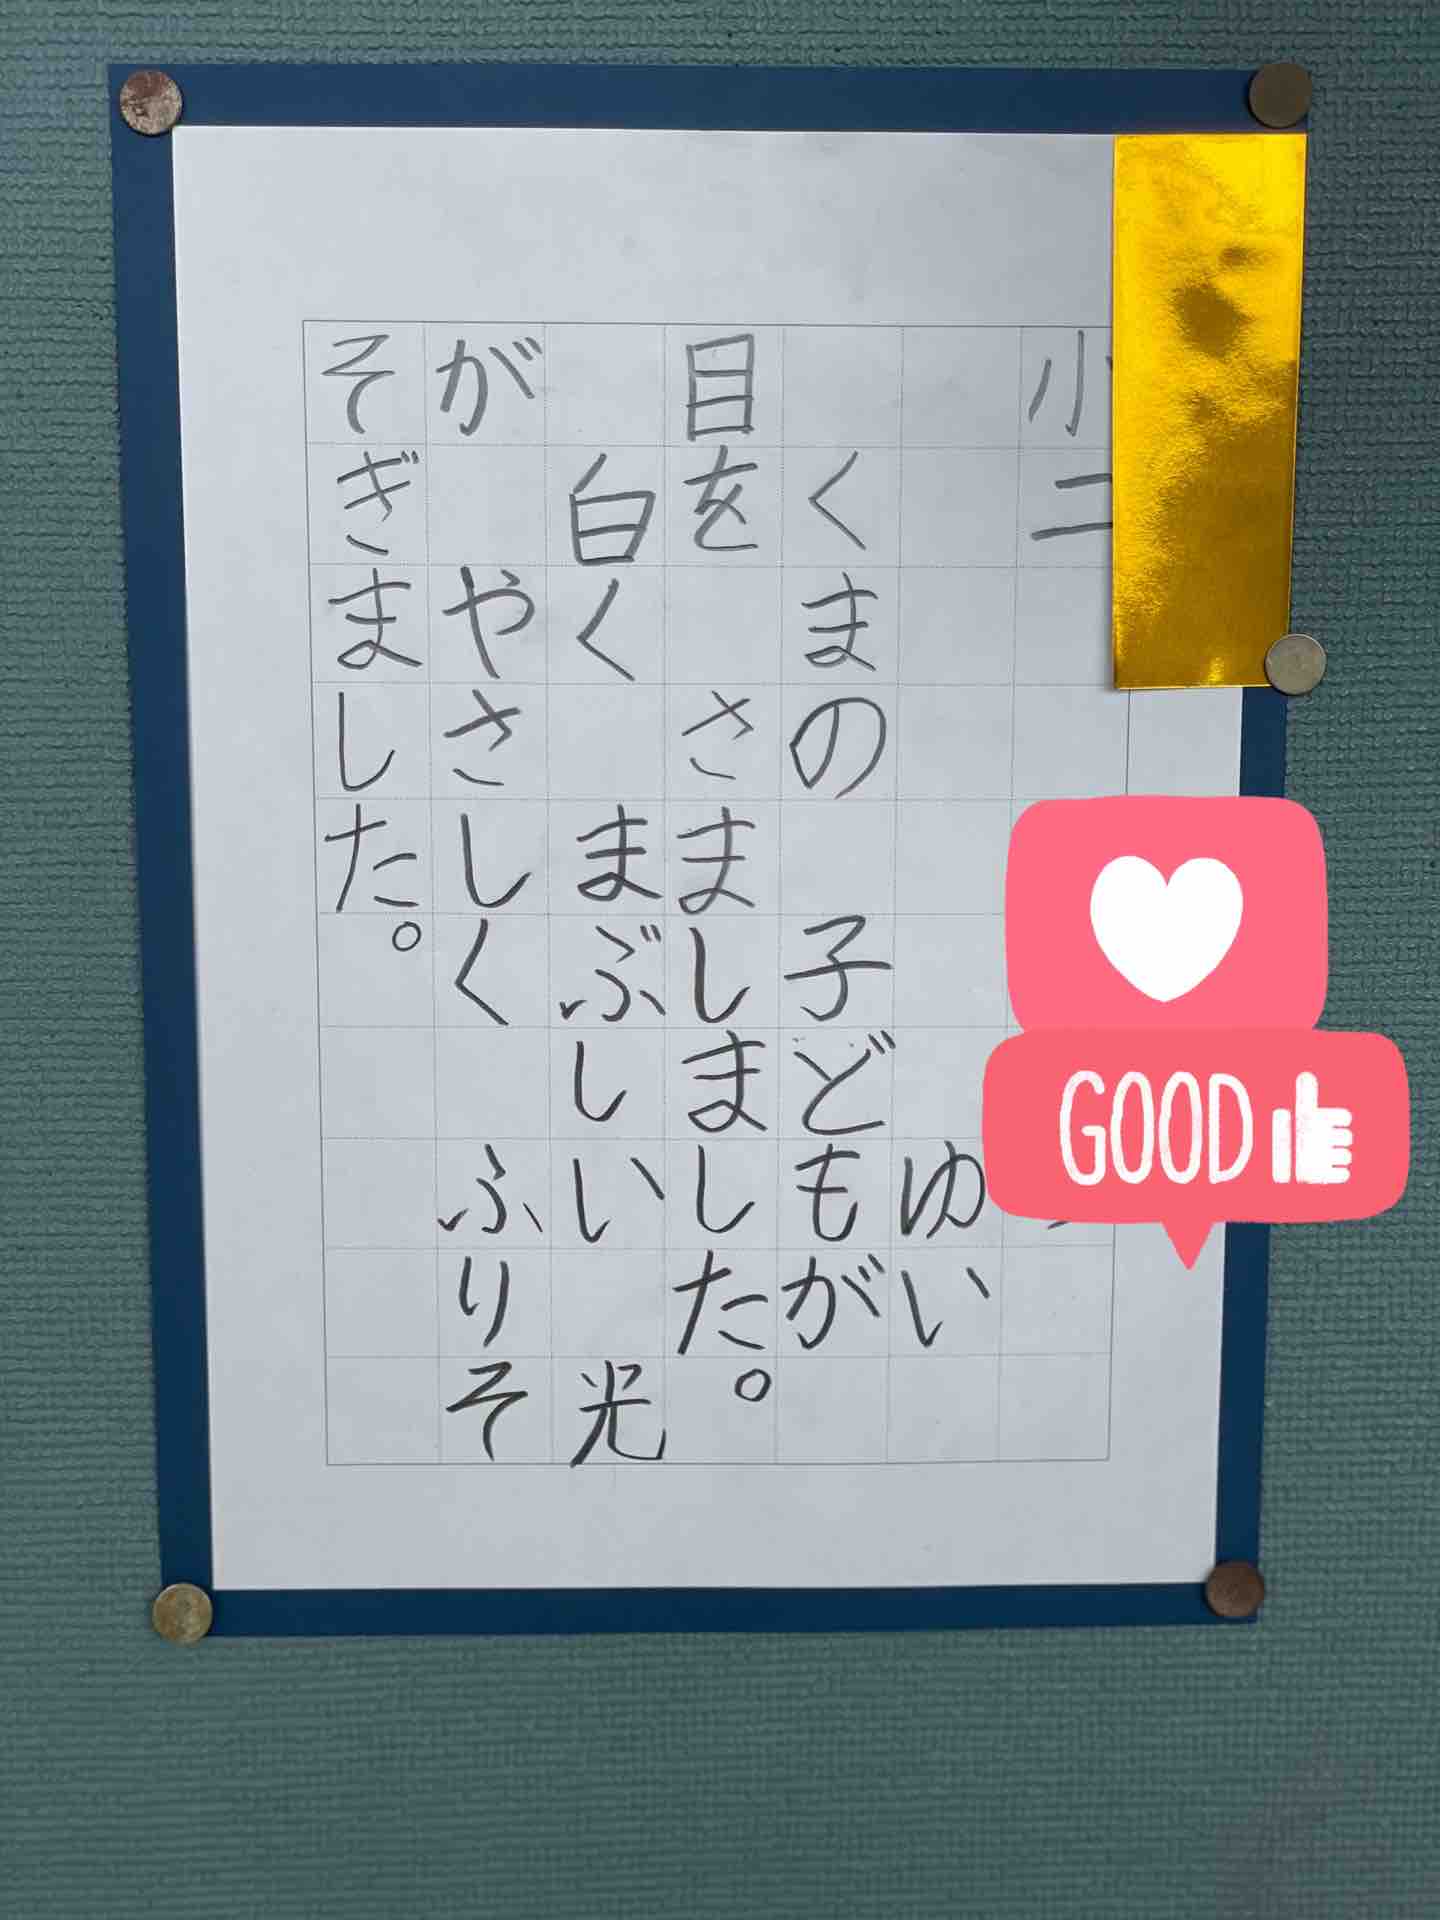 小二
ゆい
くまの 子どもが
目を さましました。
白く まぶしい 光
が やさしく ふりそ
そぎました。
GOOD